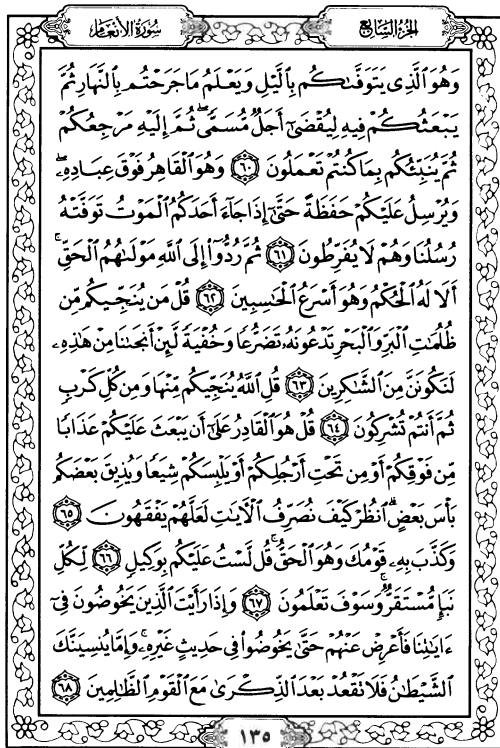 سُورَةُ الأَنعَامِ
الجُزءُ السَّابِعُ
وَهُوَ ٱلَّذِى يَتَوَفَّىٰكُم بِٱلَّيْلِ وَيَعْلَمُ مَا جَرَحْتُم بِٱلنَّهَارِ ثُمَّ
يَبْعَثُكُمْ فِيهِ لِيُقْضَىٰٓ أَجَلٌ مُّسَمًّى ۖ ثُمَّ إِلَيْهِ مَرْجِعُكُمْ
ثُمَّ يُنَبِّئُكُم بِمَا كُنتُمْ تَعْمَلُونَ ٦٠ وَهُوَ ٱلْقَاهِرُ فَوْقَ عِبَادِهِۦ ۖ
وَيُرْسِلُ عَلَيْكُمْ حَفَظَةً حَتَّىٰٓ إِذَا جَآءَ أَحَدَكُمُ ٱلْمَوْتُ تَوَفَّتْهُ
رُسُلُنَا وَهُمْ لَا يُفَرِّطُونَ ٦١ ثُمَّ رُدُّوٓا۟ إِلَى ٱللَّهِ مَوْلَىٰهُمُ ٱلْحَقِّ ۚ
أَلَا لَهُ ٱلْحُكْمُ وَهُوَ أَسْرَعُ ٱلْحَٰسِبِينَ ٦٢ قُلْ مَن يُنَجِّيكُم مِّن
ظُلُمَٰتِ ٱلْبَرِّ وَٱلْبَحْرِ تَدْعُونَهُۥ تَضَرُّعًا وَخُفْيَةً لَّئِنْ أَنجَىٰنَا مِنْ هَٰذِهِۦ
لَنَكُونَنَّ مِنَ ٱلشَّٰكِرِينَ ٦٣ قُلِ ٱللَّهُ يُنَجِّيكُم مِّنْهَا وَمِن كُلِّ كَرْبٍ
ثُمَّ أَنتُمْ تُشْرِكُونَ ٦٤ قُلْ هُوَ ٱلْقَادِرُ عَلَىٰٓ أَن يَبْعَثَ عَلَيْكُمْ عَذَابًا
مِّن فَوْقِكُمْ أَوْ مِن تَحْتِ أَرْجُلِكُمْ أَوْ يَلْبِسَكُمْ شِيَعًا وَيُذِيقَ بَعْضَكُم
بَأْسَ بَعْضٍ ۗ ٱنظُرْ كَيْفَ نُصَرِّفُ ٱلْءَايَٰتِ لَعَلَّهُمْ يَفْقَهُونَ ٦٥
وَكَذَّبَ بِهِۦ قَوْمُكَ وَهُوَ ٱلْحَقُّ ۚ قُل لَّسْتُ عَلَيْكُم بِوَكِيلٍ ٦٦ لِّكُلِّ
نَبَإٍ مُّسْتَقَرٌّ ۚ وَسَوْفَ تَعْلَمُونَ ٦٧ وَإِذَا رَأَيْتَ ٱلَّذِينَ يَخُوضُونَ فِىٓ
ءَايَٰتِنَا فَأَعْرِضْ عَنْهُمْ حَتَّىٰ يَخُوضُوا۟ فِى حَدِيثٍ غَيْرِهِۦ ۚ وَإِمَّا يُنسِيَنَّكَ
ٱلشَّيْطَٰنُ فَلَا تَقْعُدْ بَعْدَ ٱلذِّكْرَىٰ مَعَ ٱلْقَوْمِ ٱلظَّٰلِمِينَ ٦٨
١٣٥